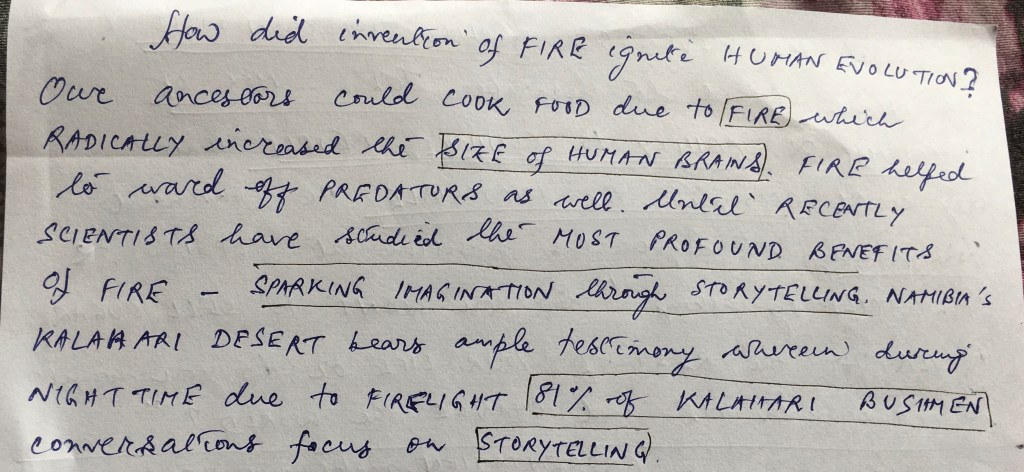 How did invention of FIRE ignite HUMAN EVOLUTION?
Our ancestors could COOK FOOD due to FIRE which
RADICALLY increased the SIZE of HUMAN BRAINS. FIRE helped
to ward off PREDATORS as well. Until RECENTLY
SCIENTISTS have studied the MOST PROFOUND BENEFITS
Of FIRE – SPARKING IMAGINATION through STORYTELLING. NAMIBIA's
KALAHARI DESERT bears ample testimony wherein during
NIGHT TIME due to FIRELIGHT 81% of KALAHARI BUSHMEN
conversations focus on STORYTELLING.